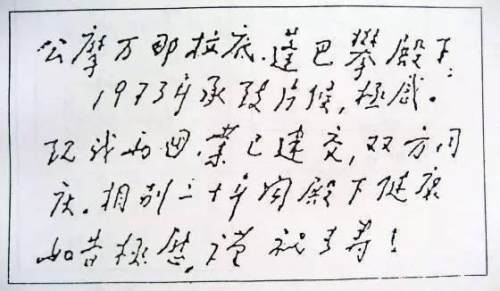 公摩万那拉底.蓬巴攀殿下:
1973年承致问候,极感。
现我两国.业已建交,双方同
庆。相别二十年闻殿下健康
如昔极慰,谨祝长寿!